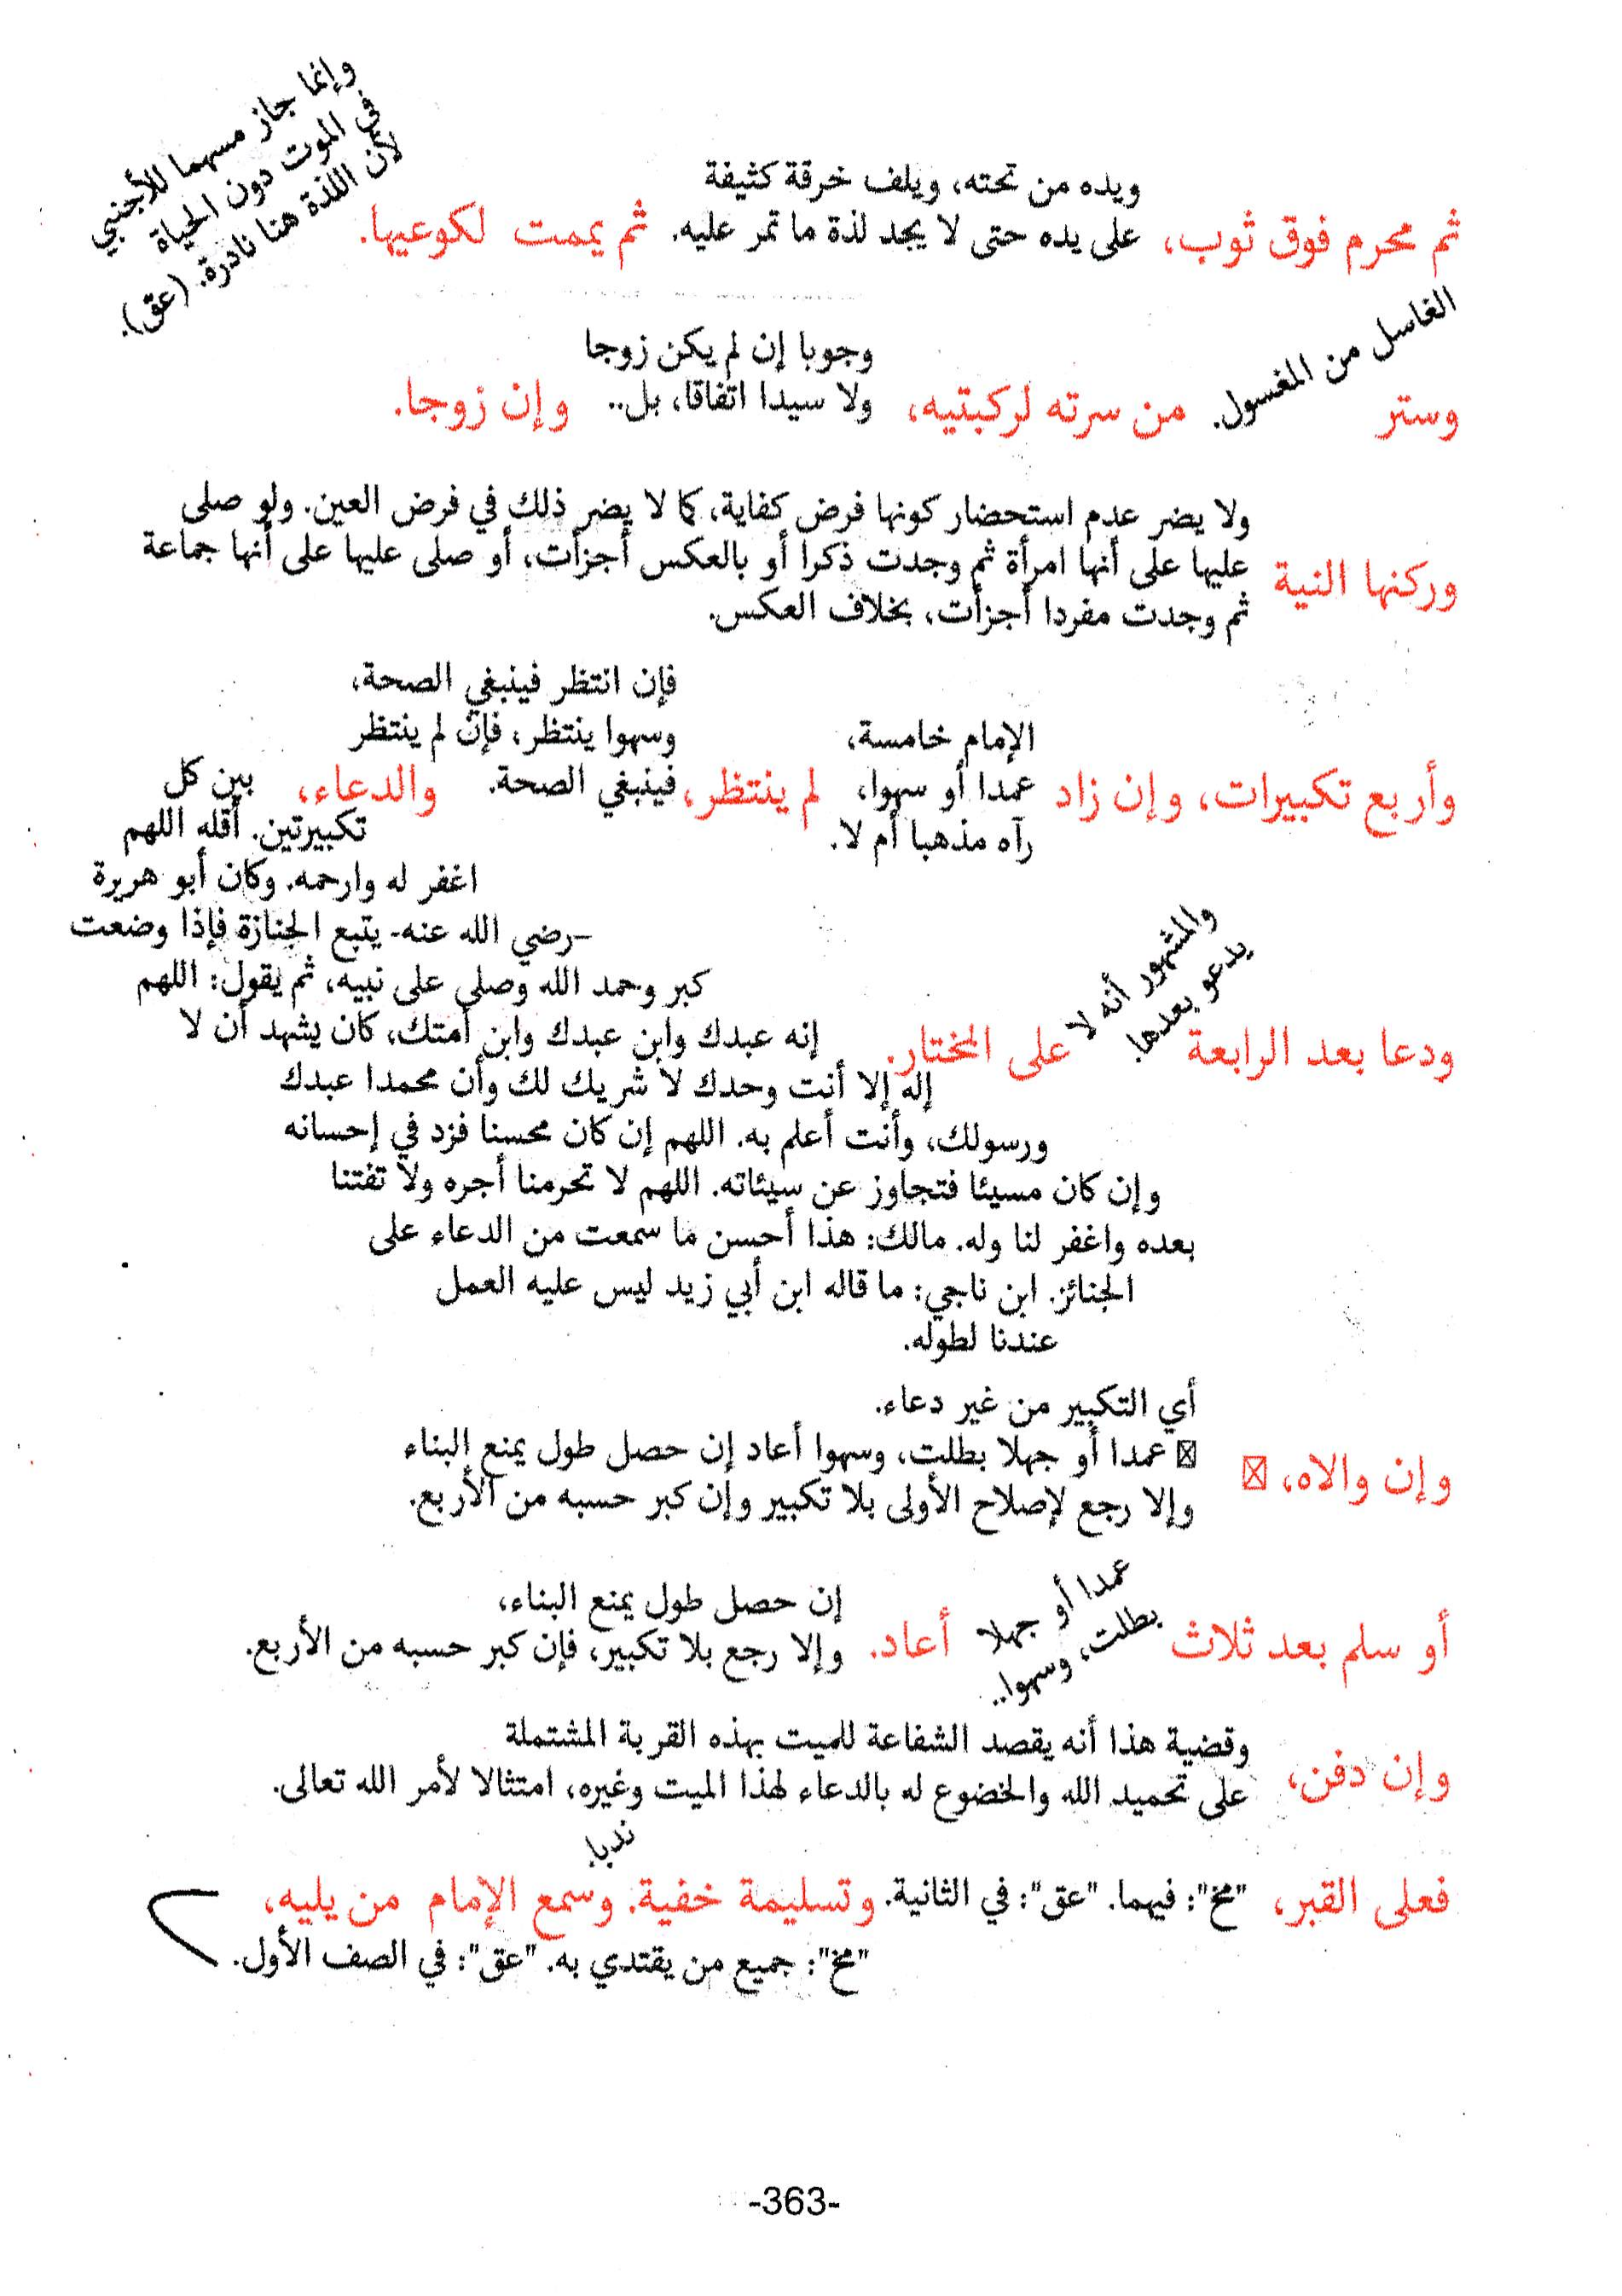 وإنما جاز مسهما للأجنبي
في الموت دون الحياة
لأن اللذة هنا نادرة. (عق).
ويده من تحته، ويلف خرقة كثيفة
ثم محرم فوق ثوب، على يده حتى لا يجد لذة ما تمر عليه. ثم يممت لكوعيها.
الغاسل من المغسول.
وجوبا إن لم يكن زوجا
وستر من سرته لركبتيه، ولا سيدا اتفاقا، بل.. وإن زوجا.
ولا يضر عدم استحضار كونها فرض كفاية، كما لا يضر ذلك في فرض العين. ولو صلى
وركنها النية عليها على أنها امرأة ثم وجدت ذكرا أو بالعكس أجزأت، أو صلى عليها على أنها جماعة
ثم وجدت مفردا أجزأت، بخلاف العكس.
فإن انتظر فينبغي الصحة،
الإمام خامسة، وسهوا ينتظر، فإن لم ينتظر
وأربع تكبيرات، وإن زاد عمدا أو سهوا، لم ينتظر، فينبغي الصحة. والدعاء، بين كل
رآه مذهبا أم لا. تكبيرتين. أقله اللهم
اغفر له وارحمه. وكان أبو هريرة
-رضي الله عنه- يتبع الجنازة فإذا وضعت
كبر وحمد الله وصلى على نبيه، ثم يقول: اللهم
والمشهور أنه لا
يدعو بعدها.
ودعا بعد الرابعة على المختار. إنه عبدك وابن عبدك وابن أمتك، كان يشهد أن لا
إله إلا أنت وحدك لا شريك لك وأن محمدا عبدك
ورسولك، وأنت أعلم به. اللهم إن كان محسنا فزد في إحسانه
وإن كان مسيئا فتجاوز عن سيئاته. اللهم لا تحرمنا أجره ولا تفتنا
بعده واغفر لنا وله. مالك: هذا أحسن ما سمعت من الدعاء على
الجنائز. ابن ناجي: ما قاله ابن أبي زيد ليس عليه العمل
عندنا لطوله.
أي التكبير من غير دعاء.
وإن والاه، عمدا أو جهلا بطلت، وسهوا أعاد إن حصل طول يمنع البناء
وإلا رجع لإصلاح الأولى بلا تكبير وإن كبر حسبه من الأربع.
عمدا أو جهلا
بطلت، وسهوا..
إن حصل طول يمنع البناء،
أو سلم بعد ثلاث أعاد. وإلا رجع بلا تكبير، فإن كبر حسبه من الأربع.
وقضية هذا أنه يقصد الشفاعة للميت بهذه القربة المشتملة
وإن دفن، على تحميد الله والخضوع له بالدعاء لهذا الميت وغيره، امتثالا لأمر الله تعالى.
ندبا.
فعلى القبر، "مخ": فيهما. "عق": في الثانية. وتسليمة خفية. وسمع الإمام من يليه،
"مخ": جميع من يقتدي به. "عق": في الصف الأول.
-363-